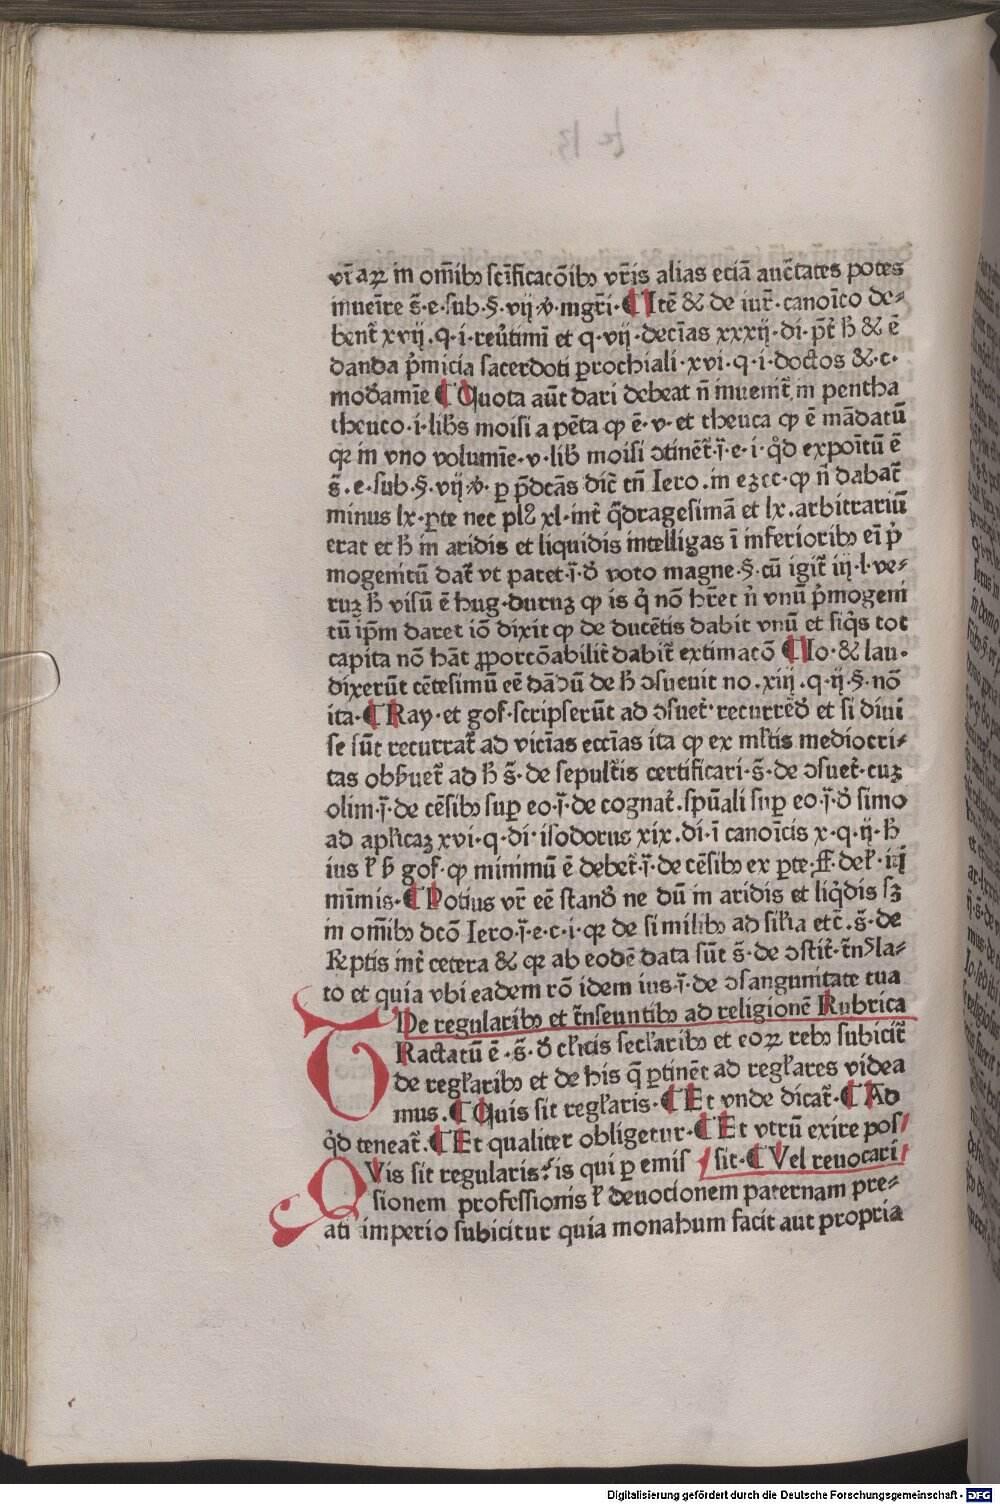 vr̄aꝝ in om̄ibꝫ scīficacōibꝫ vr̄is alias eciā auc̄tates potes
inuenīre s̄·e·sub·§·vij·ꝟ·mgr̄i·¶Itē & de iur̄·canoīco de⸗
bent̄ xvij·q·i·reuʼtimī et q·vij·decīas xxxij·di·pr̄t ħ & ē
danda pʼmicia sacerdoti ꝑrochiali·xvi·q·i·doctos &·c·
moꝺamīe ¶Quota aūt dari debeat n̄ inuenit̄ in pentha
theuco·i·libʼs moisi a pēta qꝫ ē·v·et theuca qꝫ ē mādatū
qꝛ in vno volumīe·v·libʼ moisi ↄtinēt̄·j̄·e·i·qʼd expoītū ē
s̄·e·sub·§·vij·ꝟ·ꝑ pʼdcās dic̄ tn̄ Iero·in ezec·qꝫ n̄ dabat̄
minus lx·ꝑte nec plꝰ xl·int̄ qʼdragesimā et lx·arbitrariū
erat et ħ in aridis et liquidis intelligas ī inferioribꝫ eī pʼ
mogenitū dat̄ vt patet·j̄·ꝺ voto magne·§·cū igit̄ iij·l·ve⸗
ruꝫ ħ visū ē hug·duruꝫ qꝫ is qʼ nō hr̄et nʼ vnū pʼmogeni
tū ip̄m daret iō dixit qꝫ de ducētis dabit vnū et siqʼs tot
capita nō hāt ꝓporcōabilit̄ dabit̄ extimacō ¶Io·& lau·
dixerūt cētesimū eē dādū de ħ ↄsueuit no·xiij·q·ij·§·nō
ita·¶Ray·et gof·scripserūt ad ↄsuet̄·recurrēꝺ et si diui
se sūt recurrat̄ ad vicīas eccīas ita qꝫ ex ml̄tis mediocri⸗
tas obẜuet̄ ad ħ s̄·de sepult̄is certificari·s̄·de ↄsuet̄·cuꝫ
olim·j̄·de cēsibꝫ suꝑ eo·j̄·de cognat̄·spūali suꝑ eo·j̄·ꝺ simo
ad apl̄icaꝫ xvi·q·di· isodorus xix·di·ī canoīcis x·q·ij·ħ
ius ł ẜ gof·qꝫ minimū ē debet̄·j̄·de cēsibꝫ ex ꝑte·ff·deł·iij
mīmis·¶Potius vr̄ eē stanꝺ ne dū in aridis et liqʼdis sꝫ
in om̄ibꝫ dcō Iero·j̄·e·c·i·qꝛ de similibꝫ ad sil̄ia etc̄·s̄·de
reſc̄ptis int̄ cetera & qꝛ ab eodē data sūt s̄·de ↄstit̄·tn̄sla⸗
to et quia vbi eadem rō idem ius·j̄·de ↄsanguinitate tua
De regularibꝫ et tn̄seuntibꝫ ad religionē Rubrica
TRactatū ē·s̄·ꝺ cl̄icis secl̄aribꝫ et eoꝝ rebꝫ subicit̄
de regl̄aribꝫ et de his q̄ ꝑtinēt ad regl̄ares videa
mus·¶Quis sit regl̄aris·¶Et vnde dicat̄·¶Ad
qʼd teneat̄·¶Et qualiter obligetur·¶Et vtrū exire pos
sit·¶Vel reuocari
QVis sit regularis·is qui ꝑ emis
sionem professionis ł deuocionem paternam pre⸗
ati imperio subicitur quia monahum facit aut propria
Digitalisierung gefördert durch die Deutsche Forschungsgemeinschaft - DFG